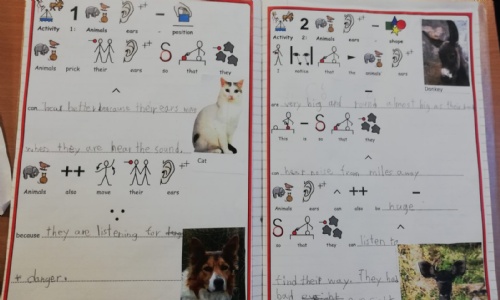 Activity 1: Animals ears - position
1
Animals prick their ears so that they
can hear better because their ears
when they are hear the sound.
Cat
++
Animals also move their ears
because they are listening for
danger.
Activity 2: Animals ears - shape
2
I notice that the animals ears
Donkey
are very big and almost big as
This is so that they
can hear noise from miles away
++
Animals ears can also be huge
so that they can listen to
find their way. They
bad